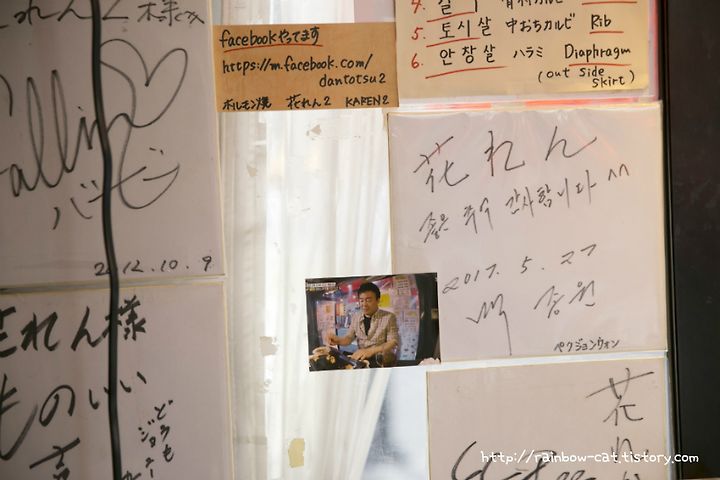 花れん2様
allin
バービー
2012.10.9
facebookやってます
https://m.facebook.com/
dantotsu2
ホルモン焼 花れん2 KAREN2
5. 토시살 中おちカルビ Rib
6. 안창살 ハラミ Diaphragm
(out side
skirt)
花れん
좋은 추억 감사합니다 ^^
2017. 5. 27
백종원
ペクジョンウォン
花れん様
ものいい
どうも
花れ
http://rainbow-cat.tistory.com